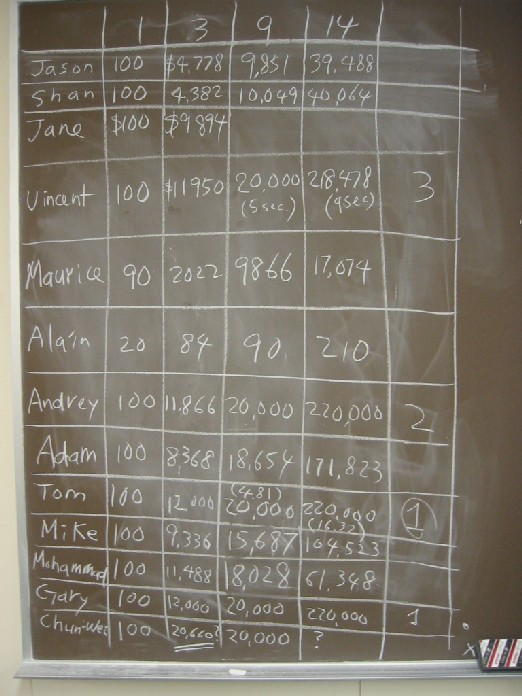 1 3 9 14
Jason 100 $4.778 9,851 39,488
Shan 100 4,382 10,049 40,064
Jane $100 $9894
Vincent 100 $11950 20,000 218,478 3
(5sec) (9sec)
Maurice 90 2022 9866 17,074
Alain 20 84 90 210
Andrey 100 11.866 20,000 220,000 2
Adam 100 8368 18,654 171,823
Tom 100 12,000 (4.81) 20,000 220,000 (16.32) 1
Mike 100 9,336 15,687 104,523
Mohammad 100 11,488 18,028 61,348
Gary 100 12,000 20,000 220,000 1
Chun-Wei 100 20,660? 20,000 ?
x